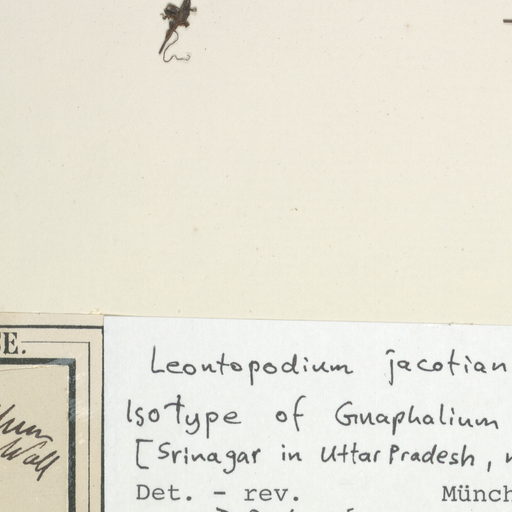 E.
Wall
Leontopodium jacotian
Isotype of Gnaphalium
[Srinagar in Uttar Pradesh,
Det. - rev. Münch